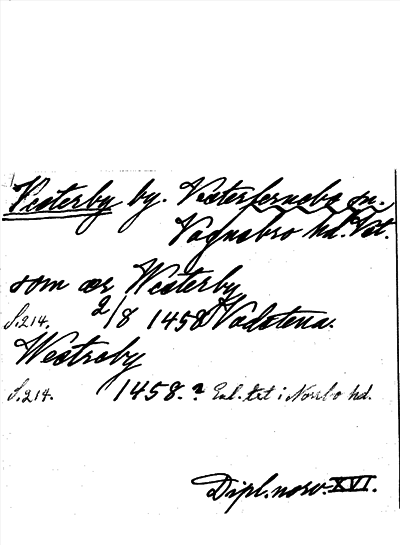 Vesterby by. Västerfernebo sn.
Vagnsbro hd. Vst.
som ær Westerby
S.214. 2/8 1458 Vadstena.
Westroby
S.214. 1458. ? Enl. txt i Norrbo hd.
Dipl. norv. XVI.